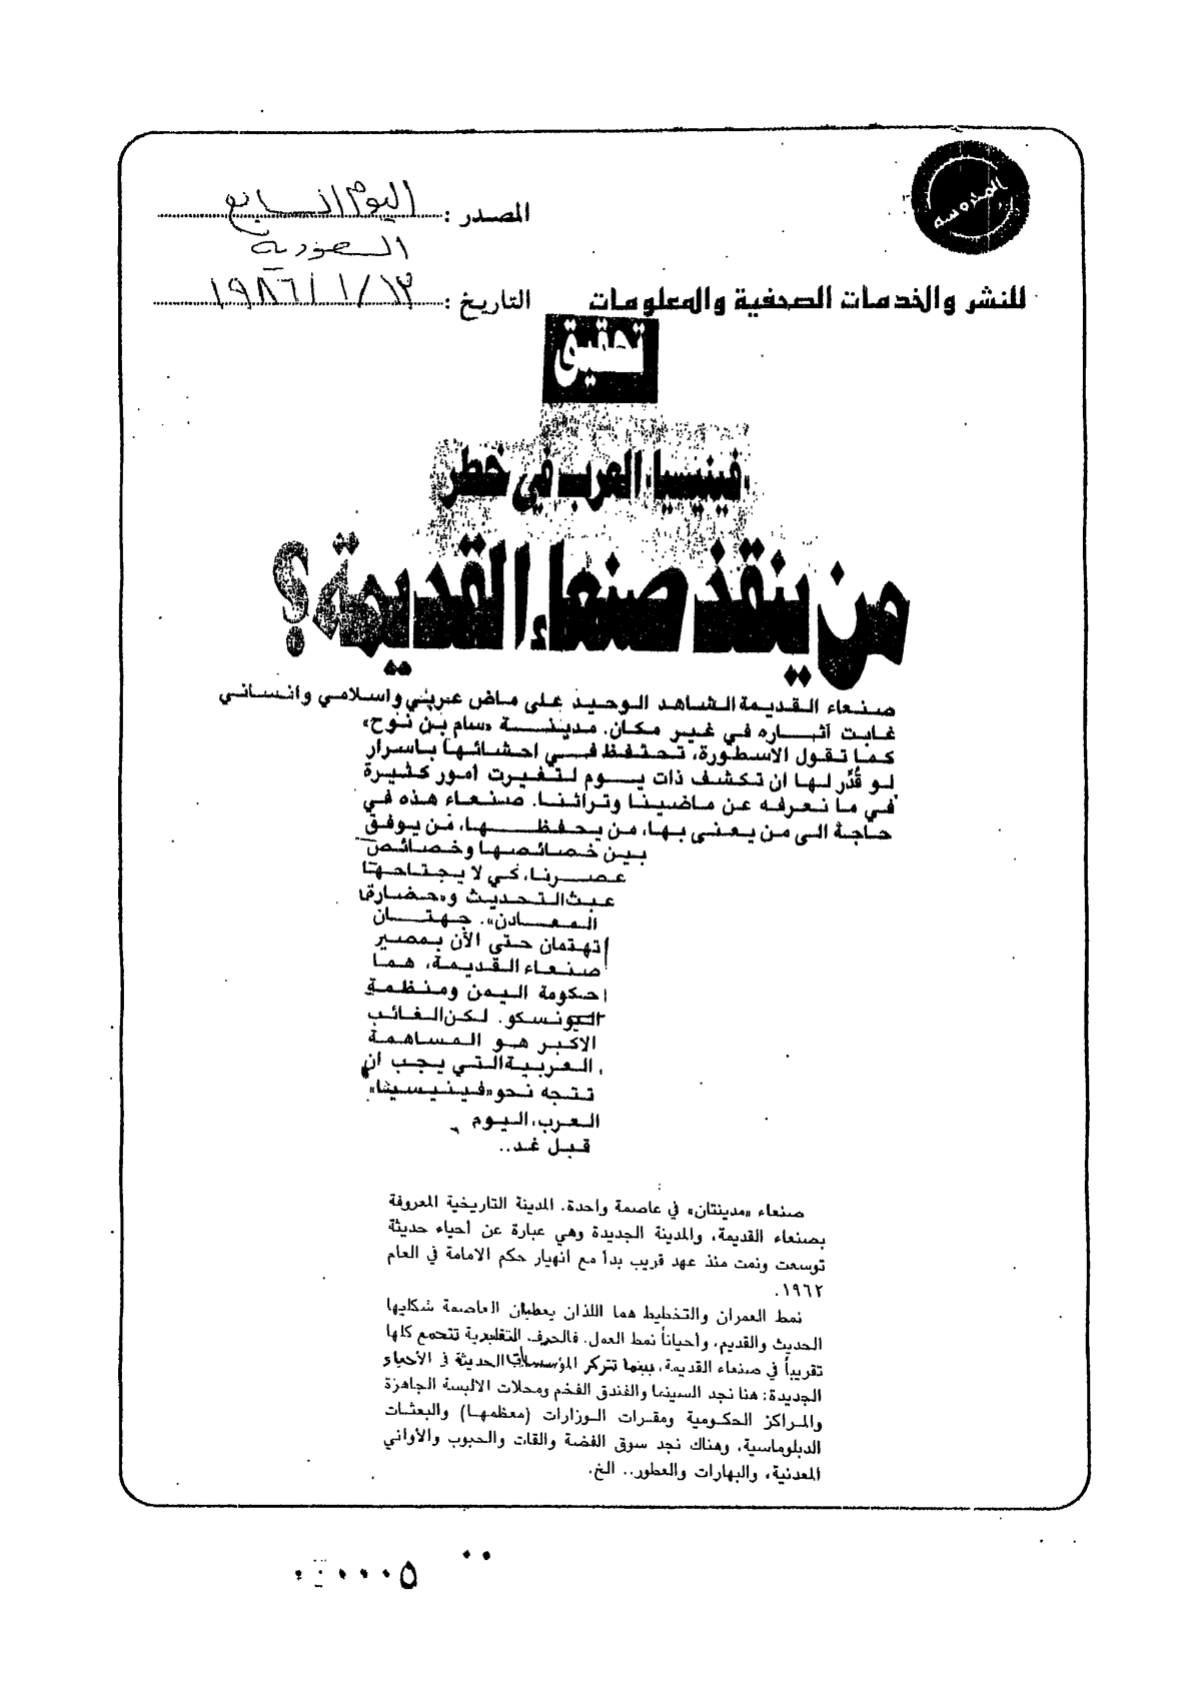 المدرسة
المصدر : اليوم السابع
السعودية
للنشر والخدمات الصحفية والمعلومات
التاريخ : ١٩٨٦/١/١٣
تحقيق
«فينيسيا» العرب في خطر
من ينقذ صنعاء القديمة؟
صنعاء القديمة الشاهد الوحيد على ماض عربي واسلامي وانساني
غابت آثاره في غير مكان. مدينة «سام بن نوح»
كما تقول الاسطورة، تحتفظ في احشائها باسرار
لو قُدِّر لها ان تكشف ذات يوم لتغيرت أمور كثيرة
في ما نعرفه عن ماضينا وتراثنا. صنعاء هذه في
حاجة الى من يعنى بها، من يحفظها، من يوفق
بين خصائصها وخصائص
عصرنا، كي لا يجتاحها
عبث التحديث و«حضارة
المعادن». جهتان
تهتمان حتى الآن بمصير
صنعاء القديمة، هما
حكومة اليمن ومنظمة
اليونسكو. لكن الغائب
الاكبر هو المساهمة
العربية التي يجب ان
تتجه نحو «فينيسيا»
العرب، اليوم
قبل غد..
صنعاء «مدينتان» في عاصمة واحدة. المدينة التاريخية المعروفة
بصنعاء القديمة، والمدينة الجديدة وهي عبارة عن أحياء حديثة
توسعت ونمت منذ عهد قريب بدأ مع انهيار حكم الامامة في العام
١٩٦٢.
نمط العمران والتخطيط هما اللذان يعطيان العاصمة شكليها
الحديث والقديم، وأحياناً نمط العمل. فالحرف التقليدية تتجمع كلها
تقريباً في صنعاء القديمة، بينما تتركز المؤسسات الحديثة في الأحياء
الجديدة: هنا نجد السينما والفندق الفخم ومحلات الالبسة الجاهزة
والمراكز الحكومية ومقرات الوزارات (معظمها) والبعثات
الدبلوماسية، وهناك نجد سوق الفضة والقات والحبوب والأواني
المعدنية، والبهارات والعطور.. الخ.